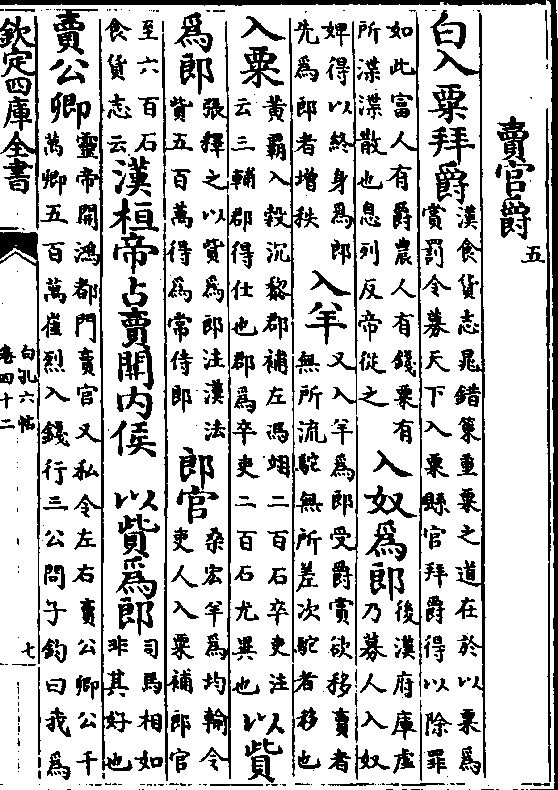 賣官爵五
白入粟拜爵漢食貨志晁錯策重粟之道在於以粟為
賞罰令募天下入粟縣官拜爵得以除罪
如此富人有爵農人有錢粟有
所渫渫散也息列反帝從之入奴為郎後漢府庫虛
乃募人入奴
婢得以終身為郎
先為郎者增秩入羊又入羊為郎受爵賞欲移賣者
無所流䝯無所差次䝯者移也
入粟黃霸入穀沉黎郡補左馮翊二百石卒吏注
云三輔郡得仕也郡為卒吏二百石尤異也以貲
為郎張釋之以貲為郎注漢法
貲五百萬得為常侍郎郎官桑宏羊為均輸令
吏人入粟補郎官
至六百石
食貨志云漢桓帝占賣關內侯以貲為郎司馬相如
非其好也
賣公卿靈帝開鴻都門賣官又私令左右賣公卿公千
萬卿五百萬崔烈入錢行三公問子鈞曰我為
欽定四庫全書
白孔六帖
卷四十二
七